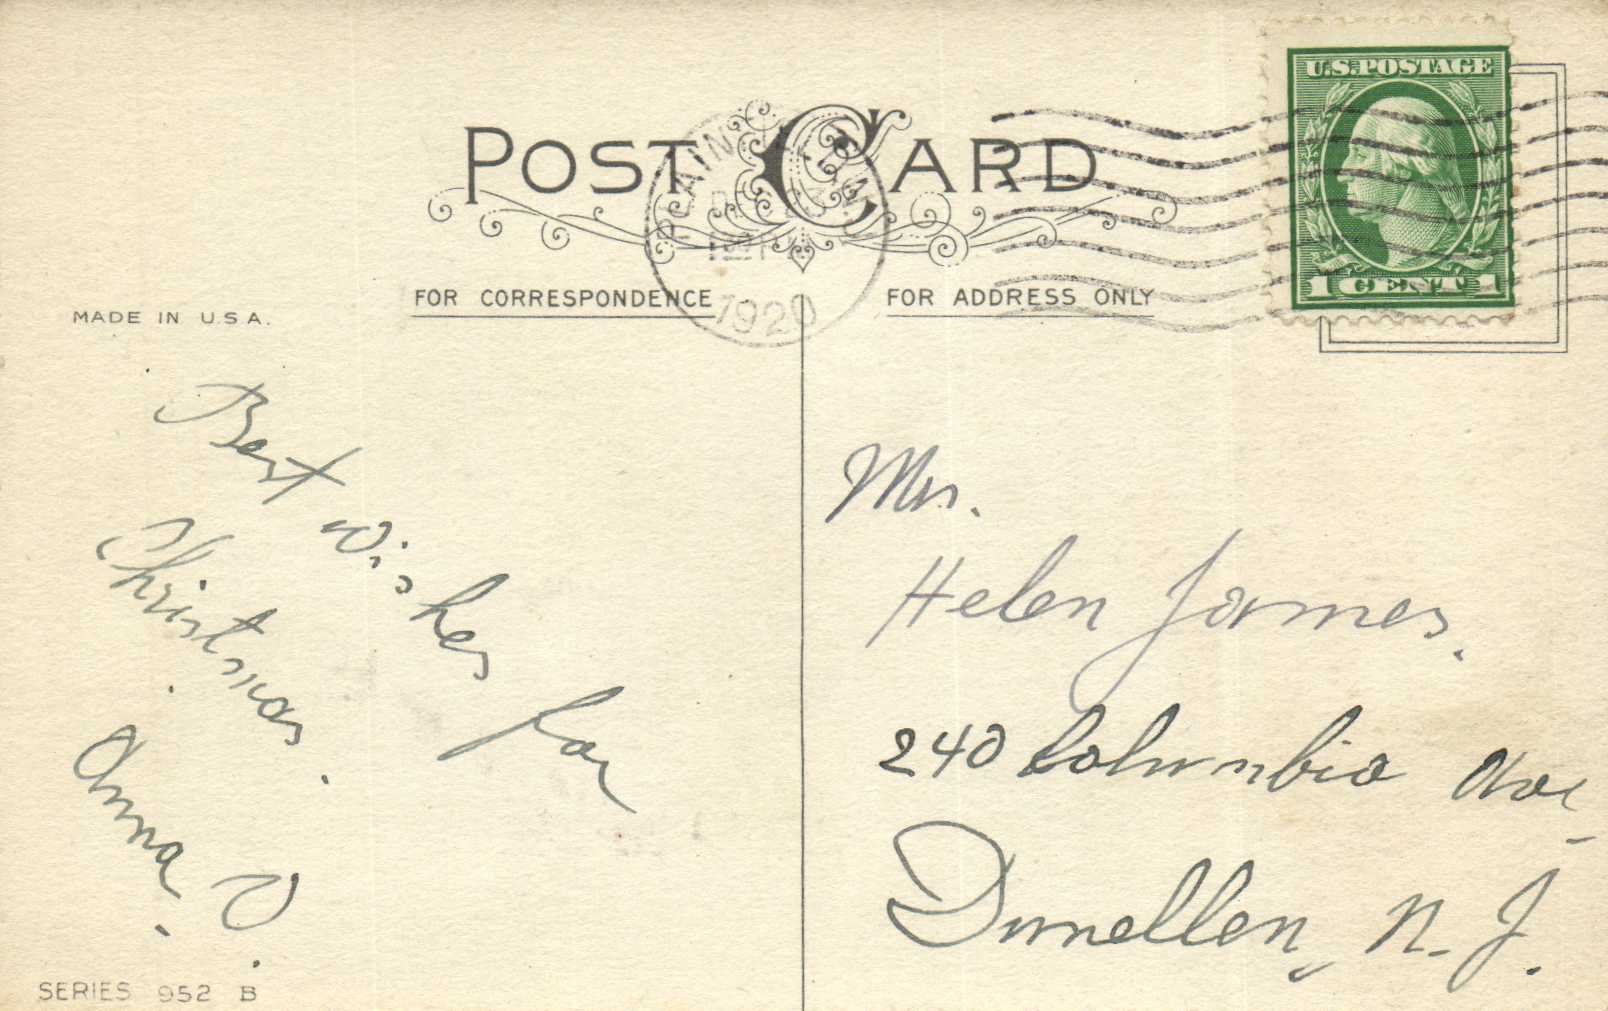 POST CARD
U.S. POSTAGE
1 CENT 1
PLAINFIELD
DEC 23
1920
FOR CORRESPONDENCE
FOR ADDRESS ONLY
MADE IN U.S.A.
Best wishes for
Christmas.
Anna. V.
SERIES 952 B
Mrs.
Helen James.
240 Columbia Ave,
Dunellen, N. J.